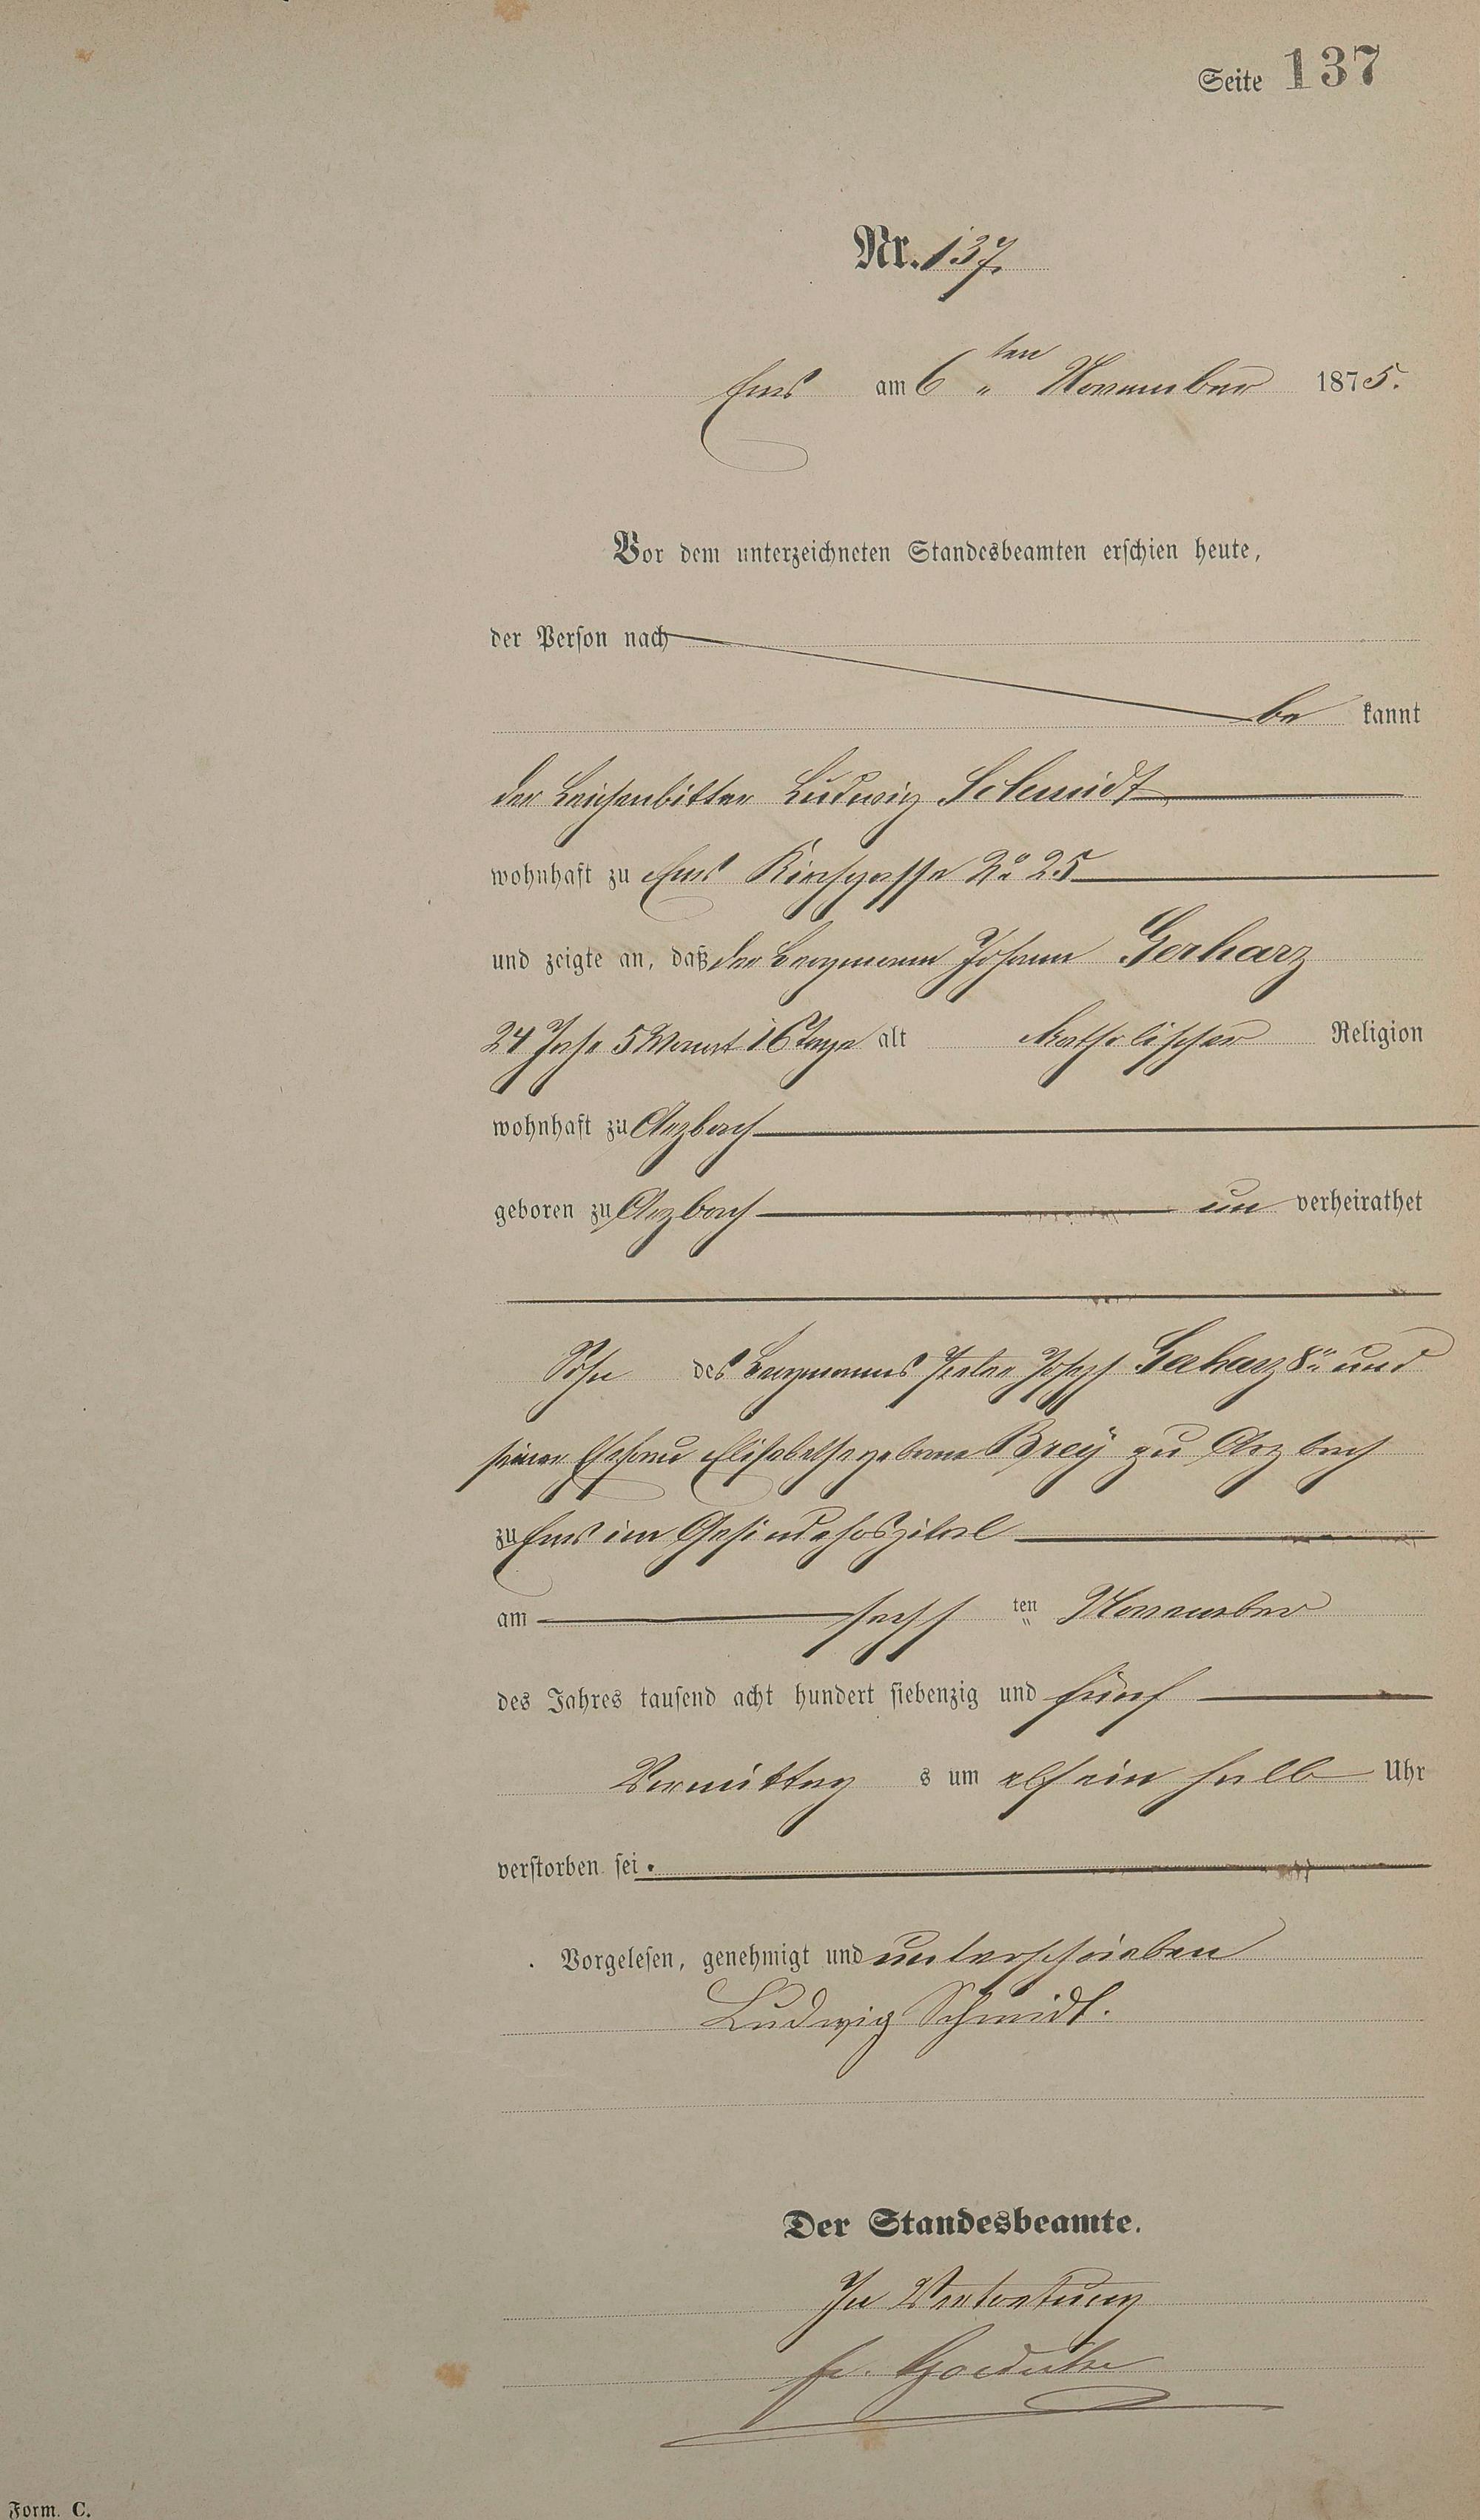 Seite 137
Nr. 137.
Ems am 6 ten November 1875.
Vor dem unterzeichneten Standesbeamten erschien heute,
der Person nach
be kannt
der Leichenbitter Ludwig Schmidt
wohnhaft zu Ems Kirchgasse No 25
und zeigte an, daß der Bergmann Johann Gerharz
24 Jahr 5 Monat 16 Tage alt Katholischer Religion
wohnhaft zu Arzbach
geboren zu Arzbach un verheirathet
Sohn des Bergmanns Peter Joseph Gerharz 8r und
seiner Ehefrau Elisabetha geborne Breÿ zu Arzbach
zu Ems im Gesindehospital
am sechs ten November
des Jahres tausend acht hundert siebenzig und fünf
Vormittag s um elf ein halb Uhr
verstorben sei.
Vorgelesen, genehmigt und unterschrieben
Ludwig Schmidt.
Der Standesbeamte.
In Vertretung
Form. C.